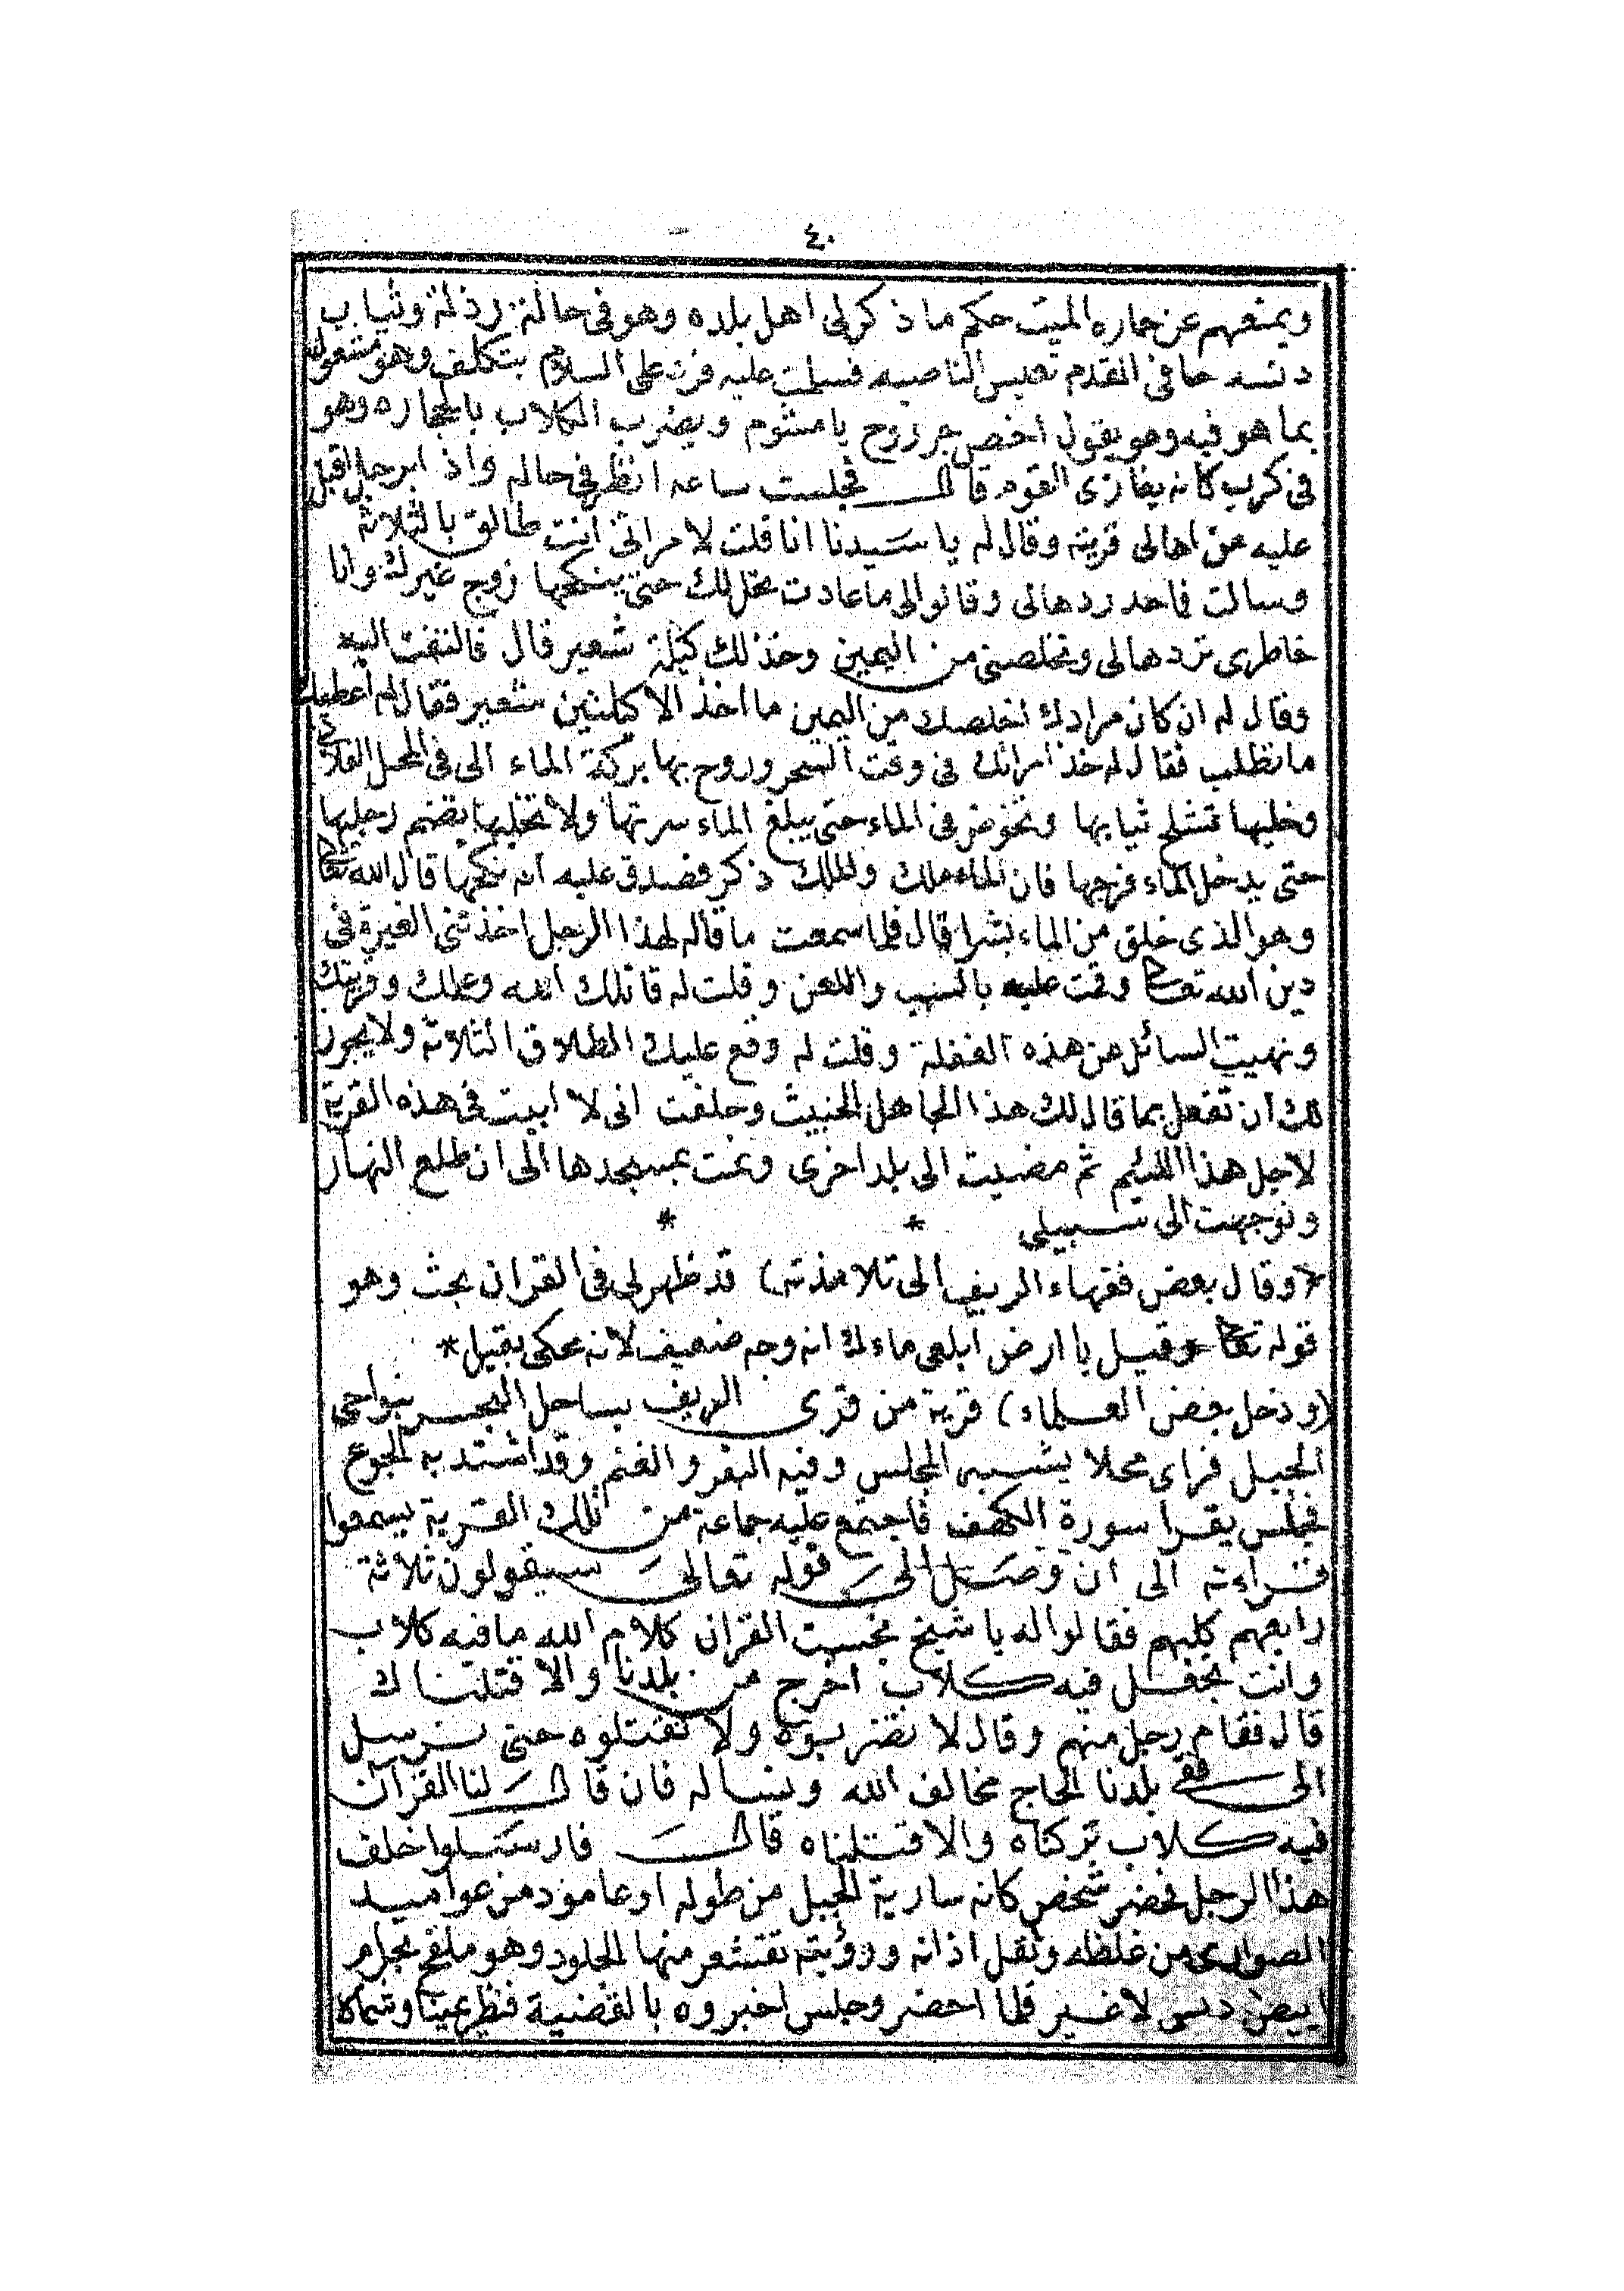 ٤٠
ويمنعهم عن حماره الميت حكم ما ذكر لى اهل بلده وهو فى حالة رذلة وثياب
دنسه حافى القدم تعيس الناصيه فسلمت عليه فرد على السلام بتكلف وهو مشغول
بما هو فيه وهو يقول اخص جر روح يا مشوم ويضرب الكلاب بالحجاره وهو
فى كرب كانه يغازى القوم قال فجلست ساعه انظر فى حاله واذا برجل اقبل
عليه من اهالى قريته وقال له يا سيدنا انا قلت لامراتى انت طالق بالثلاثة
وسالت فاحد ردها لى وقالوا لى ما عادت تحل لك حتى ينكحها زوج غيرك وانا
خاطرى تردها لى وتخلصنى من اليمين وخذ لك كيلة شعير قال فالتفت اليه
وقال له ان كان مرادك اخلصك من اليمين ما اخذ الا كيلتين شعير فقال له اعطيك
ما تطلب فقال له خذ امراتك فى وقت السحر وروح بها بركة الماء الى فى المحل الفلانى
وخليها تشلح ثيابها وتخوض فى الماء حتى يبلغ الماء سرتها ولا تخليها تضم رجليها
حتى يدخل الماء فرجها فان الماء ملك والملك ذكر فصدق عليه انه نكحها قال الله تعالى
وهو الذى خلق من الماء بشرا قال فلما سمعت ما قاله لهذا الرجل اخذتنى الغيرة فى
دين الله تعالى وقمت عليه بالسب واللعن وقلت له قاتلك الله وعملك وقريتك
ونهيت السائل عن هذه الفعلة وقلت له وقع عليك الطلاق الثلاثة ولا يجوز
لك ان تفعل بما قال لك هذا الجاهل الخبيث وحلفت انى لا ابيت فى هذه القرية
لاجل هذا اللئيم ثم مضيت الى بلد اخرى ونمت بمسجدها الى ان طلع النهار
وتوجهت الى سبيلى * *
(وقال بعض فقهاء الريف الى تلامذته) قد ظهر لى فى القران بحث وهو
قوله تعالى وقيل يا ارض ابلعى ماءك انه وجه ضعيف لانه محكى بقيل *
(ودخل بعض العلماء) قرية من قرى الريف بساحل البحر بنواحى
الجبل فراى محلا يشبه المجلس وفيه البقر والغنم وقد اشتد به الجوع
فجلس يقرا سورة الكهف فاجتمع عليه جماعة من تلك القرية يسمعوا
قراءته الى ان وصل الى قوله تعالى سيقولون ثلاثة
رابعهم كلبهم فقالوا له يا شيخ نجست القران كلام الله ما فيه كلاب
وانت تجعل فيه كلاب اخرج من بلدنا والا قتلناك
قال فقام رجل منهم وقال لا تضربوه ولا تقتلوه حتى نرسل
الى فقى بلدنا الحاج مخالف الله ونساله فان قال لنا القرآن
فيه كلاب تركناه والا قتلناه قال فارسلوا خلف
هذا الرجل فحضر شخص كانه سارية الجبل من طوله او عامود من عواميد
الصوارى من غلظه وثقل اذانه ورؤيته تقشعر منها الجلود وهو ملفح بحرام
ابيض دنس لا غير فلما احضر وجلس اخبروه بالقضية فنظر يمينا وشمالا